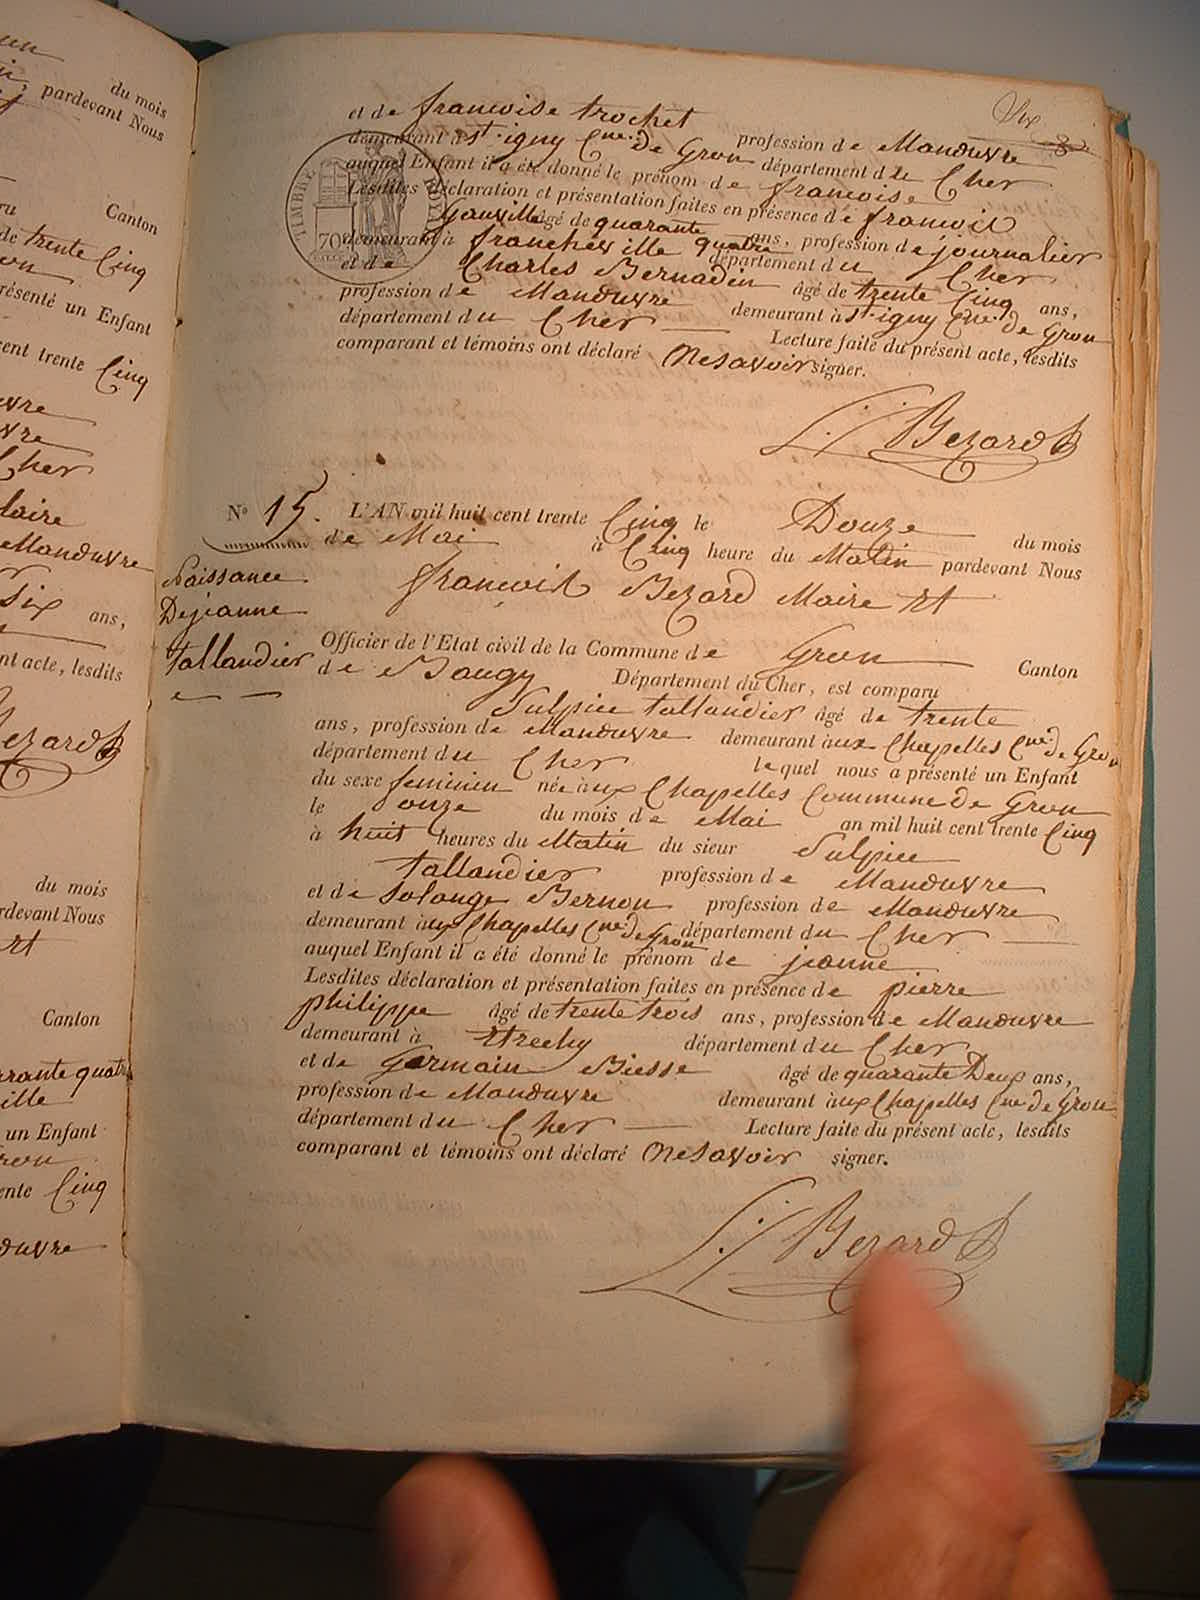 un
du mois
pardevant Nous
Canton
de trente Cinq
on
résenté un Enfant
cent trente Cinq
vre
vre
Cher
laire
Manœuvre
Six ans,
nt acte, lesdits
ezard B
du mois
rdevant Nous
rt
Canton
arante quatre
ille
un Enfant
ron
ente Cinq
œuvre
Six
8
et de francoise trochet
profession de Manœuvre
demeurant à St. igny Cne. de Gron département du Cher
auquel Enfant il a été donné le prénom de francoise
Lesdites déclaration et présentation faites en présence de francois
Gauville âgé de quarante quatre ans, profession de journalier
demeurant à francheville département du Cher
et de Charles Bernadin âgé de trente Cinq ans,
profession de Manœuvre demeurant à St. igny Cne. de Gron
département du Cher Lecture faite du présent acte, lesdits
comparant et témoins ont déclaré Ne savoir signer.
TIMBRE ROYAL
70
f. Bezard B
N° 15. L'AN mil huit cent trente Cinq le Douze du mois
de Mai à Cinq heure du Matin pardevant Nous
Naissance
francois Bezard Maire Et
Dejeanne
tallandier
Officier de l'Etat civil de la Commune de Gron Canton
de Baugy Département du Cher, est comparu
Sulpice tallandier âgé de trente
ans, profession de Manœuvre demeurant aux Chapelles Cne de Gron
département du Cher lequel nous a présenté un Enfant
du sexe feminin née aux Chapelles Commune de Gron
le onze du mois de Mai an mil huit cent trente Cinq
à huit heures du Matin du sieur Sulpice
tallandier profession de Manœuvre
et de Solange Bernon profession de Manœuvre
demeurant aux Chapelles Cne de Gron département du Cher
auquel Enfant il a été donné le prénom de jeanne
Lesdites déclaration et présentation faites en présence de pierre
philippe âgé de trente trois ans, profession de Manœuvre
demeurant à Etrechy département du Cher
et de Germain Biesse âgé de quarante Deux ans,
profession de Manœuvre demeurant aux Chapelles Cne de Gron
département du Cher Lecture faite du présent acte, lesdits
comparant et témoins ont déclaré Ne savoir signer.
f. Bezard B